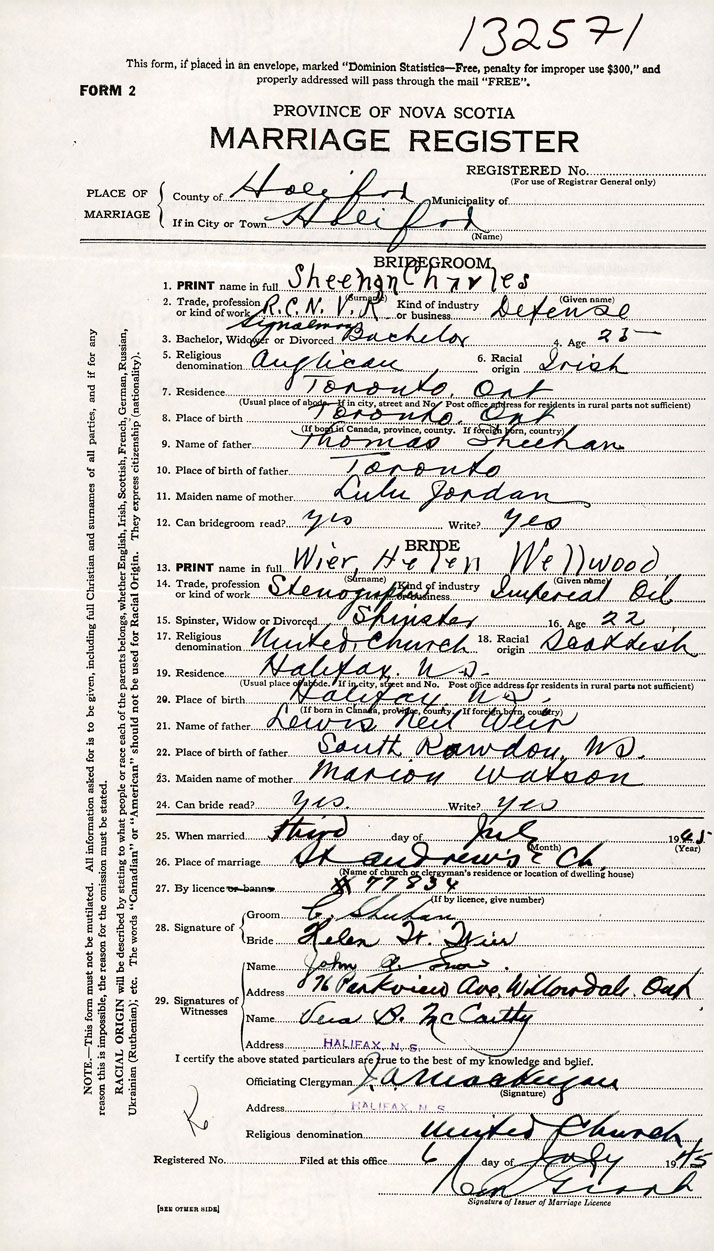 132571
This form, if placed in an envelope, marked "Dominion Statistics—Free, penalty for improper use $300," and
properly addressed will pass through the mail "FREE".
FORM 2
PROVINCE OF NOVA SCOTIA
MARRIAGE REGISTER
REGISTERED No.
(For use of Registrar General only)
PLACE OF MARRIAGE
County of Halifax Municipality of
If in City or Town Halifax
(Name)
BRIDEGROOM
1. PRINT name in full Sheehan Charles
(Surname) (Given name)
2. Trade, profession or kind of work R.C.N.V.R Signalman Kind of industry or business Defense
3. Bachelor, Widower or Divorced Bachelor 4. Age 25
5. Religious denomination Anglican 6. Racial origin Irish
7. Residence Toronto, Ont
(Usual place of abode. If in city, street and No. Post office address for residents in rural parts not sufficient)
8. Place of birth Toronto, Ont
(If born in Canada, province, county. If foreign born, country)
9. Name of father Thomas Sheehan
10. Place of birth of father Toronto
11. Maiden name of mother Lulu Jordan
12. Can bridegroom read? yes Write? yes
BRIDE
13. PRINT name in full Wier, Helen Wellwood
(Surname) (Given name)
14. Trade, profession or kind of work Stenographer Kind of industry or business Imperial Oil
15. Spinster, Widow or Divorced Spinster 16. Age 22
17. Religious denomination United Church 18. Racial origin Scottish
19. Residence Halifax, N.S.
(Usual place of abode. If in city, street and No. Post office address for residents in rural parts not sufficient)
20. Place of birth Halifax, N.S.
(If born in Canada, province, county. If foreign born, country)
21. Name of father Lewis Neil Weir
22. Place of birth of father South Rawdon, NS.
23. Maiden name of mother Marion Watson
24. Can bride read? yes. Write? yes
25. When married third day of July 1945
(Month) (Year)
26. Place of marriage St Andrew's Ch.
(Name of church or clergyman's residence or location of dwelling house)
27. By licence or banns # 77834
(If by licence, give number)
28. Signature of
Groom C. Sheehan
Bride Helen W. Wier
29. Signatures of Witnesses
Name John Snow.
Address 76 Parkview Ave, Willowdale. Ont
Name Vera D. McCarthy
Address HALIFAX, N. S.
I certify the above stated particulars are true to the best of my knowledge and belief.
Officiating Clergyman
(Signature)
Address HALIFAX, N. S.
Religious denomination United Church
Registered No. Filed at this office 6 day of July 1945
Signature of Issuer of Marriage Licence
[SEE OTHER SIDE]
NOTE.—This form must not be mutilated. All information asked for is to be given, including full Christian and surnames of all parties, and if for any
reason this is impossible, the reason for the omission must be stated.
RACIAL ORIGIN will be described by stating to what people or race each of the parents belongs, whether English, Irish, Scottish, French, German, Russian,
Ukrainian (Ruthenian), etc. The words "Canadian" or "American" should not be used for Racial Origin. They express citizenship (nationality).